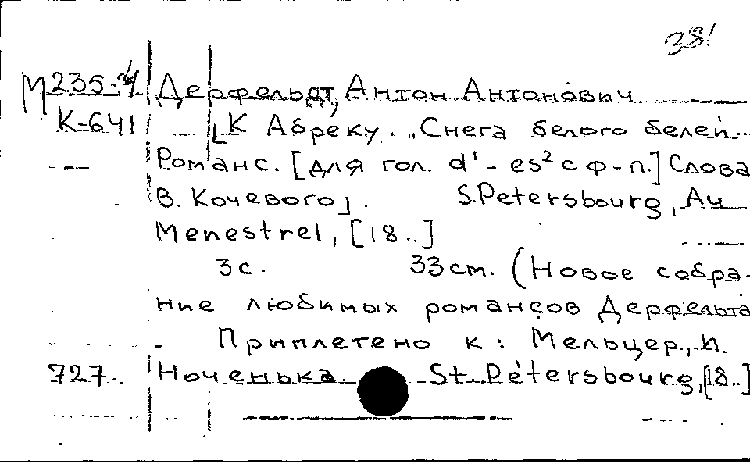 381
М235-4 Дерфельдт, Антон Антонович
К-641 [К Абреку. „Снега белого белей
Романс. [для гол. d¹-es² с ф-п.] Слова
В. Кочевого]. S.Petersbourg, Au
Menestrel, [18..]
3с. 33cm. (Новое собра-
ние любимых романсов Дерфельта
Приплетено к: Мельцер, И.
727. Ноченька St. Pétersbourg, [18..]